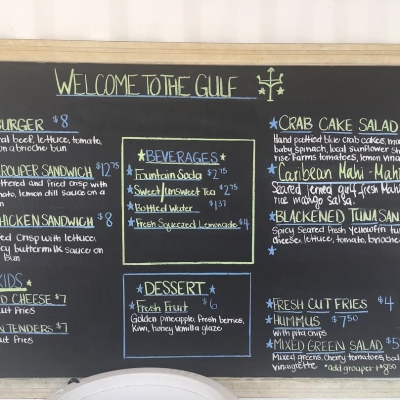 WELCOME TO THE GULF
BURGER $8
beef, lettuce, tomato,
on a brioche bun
GROUPER SANDWICH $12.75
and fried crisp with
tomato, lemon dill sauce on a
CHICKEN SANDWICH $8
crisp with lettuce,
buttermilk sauce on
bun
KIDS
CHEESE $7
fries
TENDERS $7
fries
BEVERAGES
Fountain Soda $2.75
Sweet/Unsweet Tea $2.75
Bottled Water $1.37
Fresh Squeezed Lemonade $4
DESSERT
Fresh Fruit $6
Golden pineapple, fresh berries,
Kiwi, honey Vanilla glaze
CRAB CAKE SALAD
Hand pattied blue crab cakes,
baby spinach, local sunflower
rise Farms tomatoes, lemon
Caribean Mahi-Mahi
Seared jerked gulf fresh
rice mango salsa.
BLACKENED TUNA
Spicy Seared fresh Yellowfin
cheese, lettuce, tomato, brioche
FRESH CUT FRIES $4
HUMMUS $7.50
With pita chips
MIXED GREEN SALAD $5
Mixed greens, Cherry tomatoes,
vinaigrette *add grouper +$8.50